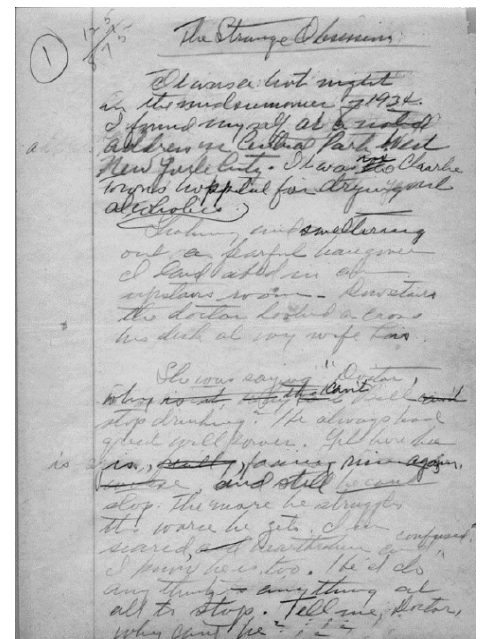 1
The Strange Obsession
It was a hot night
in the midsummer of 1934.
I found myself at a noted
address in Central Park West
New York City. I was Charles
Towns hospital for drying out
alcoholics.
and sweltering
out a fearful hangover
I laid abed in an
upstairs room - Downstairs
the doctor looked across
his desk at my wife Lois.
She was saying "Doctor,
why can't
stop drinking? He always had
great will power. Yet here he
is again, and still
stop. The more he struggles
the worse he gets. I'm
scared, and heartbroken and confused.
I know he is, too. He'd do
anything - anything at
all to stop. Tell me, Doctor,
why can't he?"